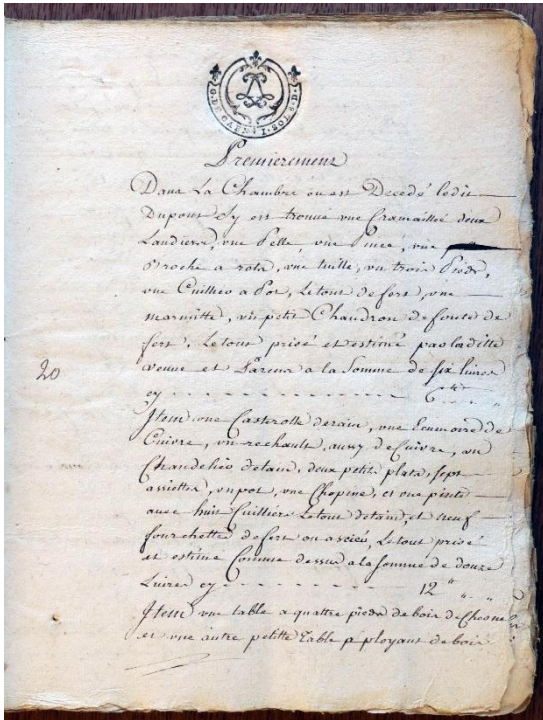 G. DE CAEN. I. SOL 8. D.
Premierement
Dans La Chambre ou est Decedé ledit
Dupont Sy est trouvé vne Cramaillée deux
Landiers, vne Pelle, vne Pince, vne
Broche a rots, vne tuille, vn trois Pieds,
vne Cuilliere a Pot, Le tout de fert, vne
marmitte, vn petit Chaudron de fonte de
fert, Le tout prisé et estimé par laditte
veuve et Pareur a la Somme de six livres
cy 6
20
Item une Casterolle derain, vne Ecumoire de
Cuivre, vn rechault, aussy de Cuivre, un
Chandelier detain, deux petits plats, sept
assiettes, vn pot, vne Chopine, et une pinte
avec huit Cuilliers Le tout detain, et neuf
fourchettes de fert ou acier, Le tout prisé
et estimé Comme dessus a la Somme de douze
Livres cy 12
Item vne table a quattre pieds de bois de Chesne
et vne autre petitte table ployant de bois